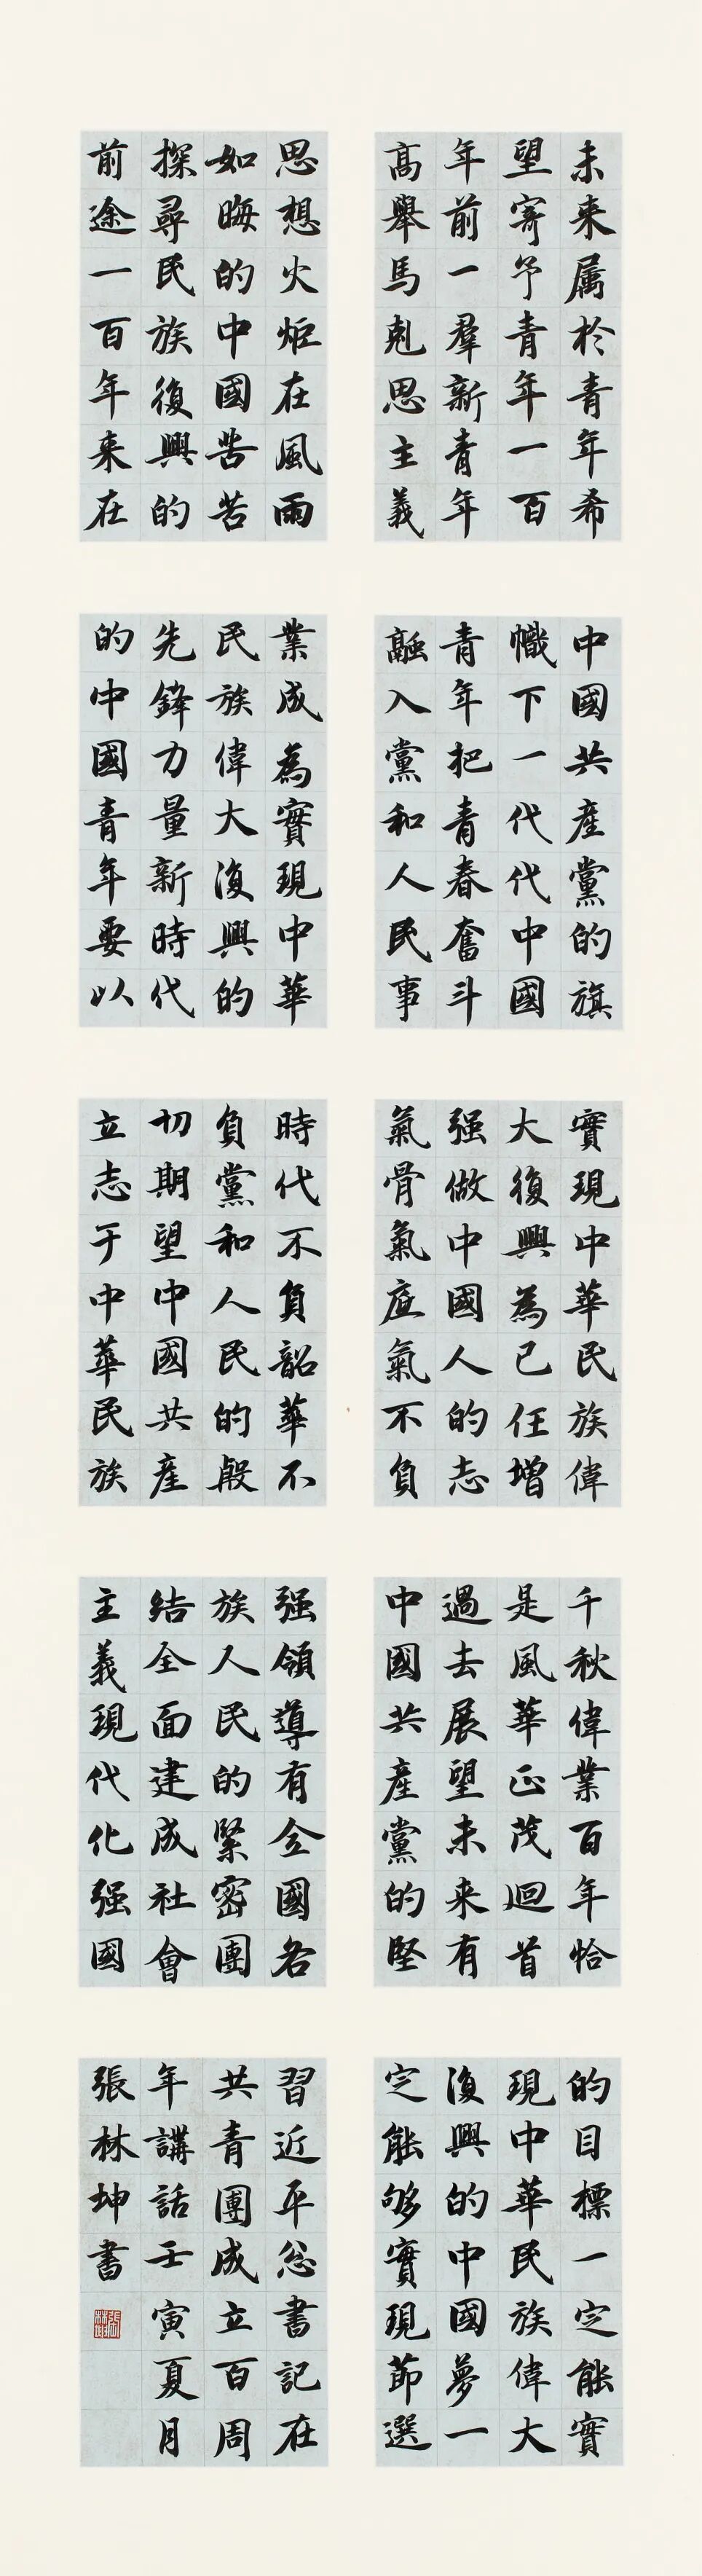 未来属於青年希
望寄予青年一百
年前一羣新青年
高舉馬剋思主義
思想火炬在風雨
如晦的中國苦苦
探尋民族復興的
前途一百年来在
中國共産黨的旗
幟下一代代中國
青年把青春奮斗
融入黨和人民事
業成為實現中華
民族偉大復興的
先鋒力量新時代
的中國青年要以
實現中華民族偉
大復興為已任增
强做中國人的志
氣骨氣底氣不負
時代不負韶華不
負黨和人民的殷
切期望中國共産
立志于中華民族
千秋偉業百年恰
是風華正茂迴首
過去展望未来有
中國共産黨的堅
强領導有全國各
族人民的緊密團
結全面建成社會
主義現代化强國
的目標一定能實
現中華民族偉大
復興的中國夢一
定能够實現節選
習近平总書記在
共青團成立百周
年講話壬寅夏月
張林坤書